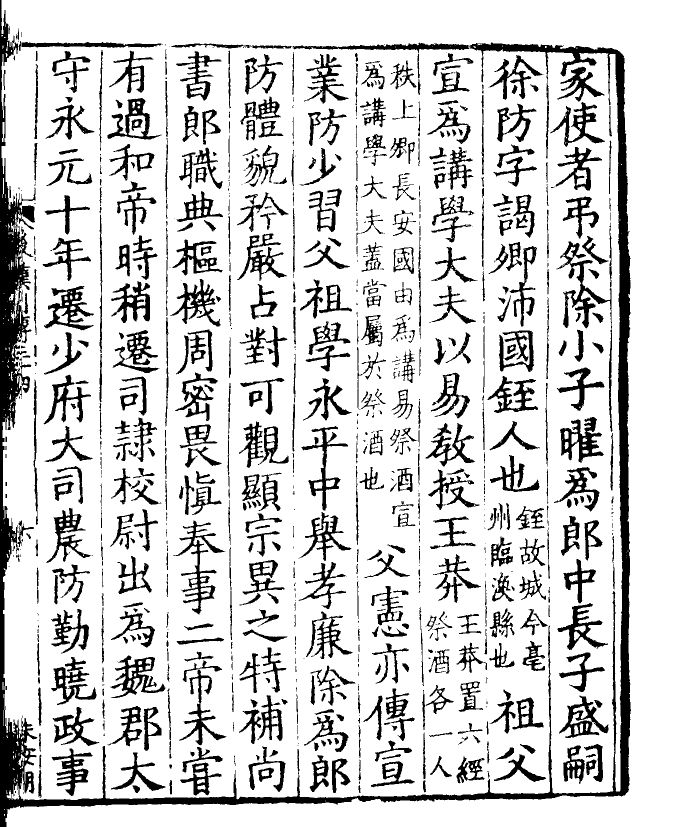 家使者弔祭除小子曜爲郎中長子盛嗣
徐防字謁卿沛國銍人也銍故城今亳州臨渙縣也祖父
宣爲講學大夫以易敎授王莽王莽置六經祭酒各一人
秩上卿長安國由爲講易祭酒宣爲講學大夫蓋當屬於祭酒也父憲亦傳宣
業防少習父祖學永平中舉孝廉除爲郎
防體貌矜嚴占對可觀顯宗異之特補尚
書郎職典樞機周密畏愼奉事二帝未嘗
有過和帝時稍遷司隷校尉出爲魏郡太
守永元十年遷少府大司農防勤曉政事